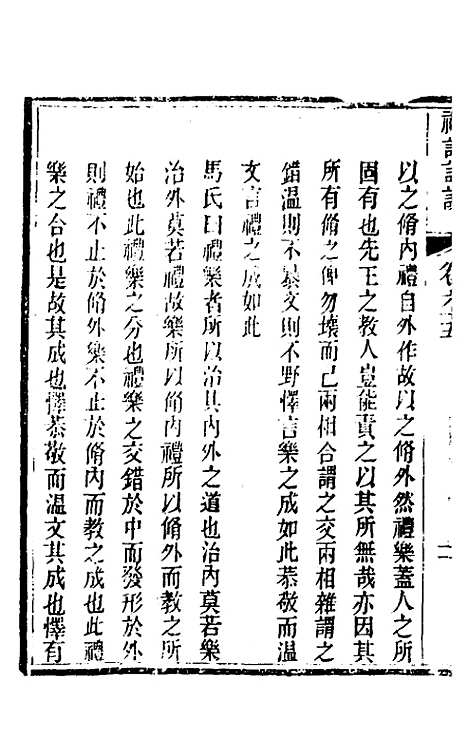 以之脩內禮自外作故以之脩外然禮樂蓋人之所
固有也先王之教人豈能責之以其所無哉亦因其
所有脩之俾勿壞而已兩相合謂之交兩相雜謂之
錯溫則不暴文則不野懌言樂之成如此恭敬而溫
文言禮之成如此
馬氏曰禮樂者所以治其內外之道也治內莫若樂
治外莫若禮故樂所以脩內禮所以脩外而教之所
始也此禮樂之分也禮樂之交錯於中而發形於外
則禮不止於脩外樂不止於脩內而教之成也此禮
樂之合也是故其成也懌恭敬而溫文其成也懌有